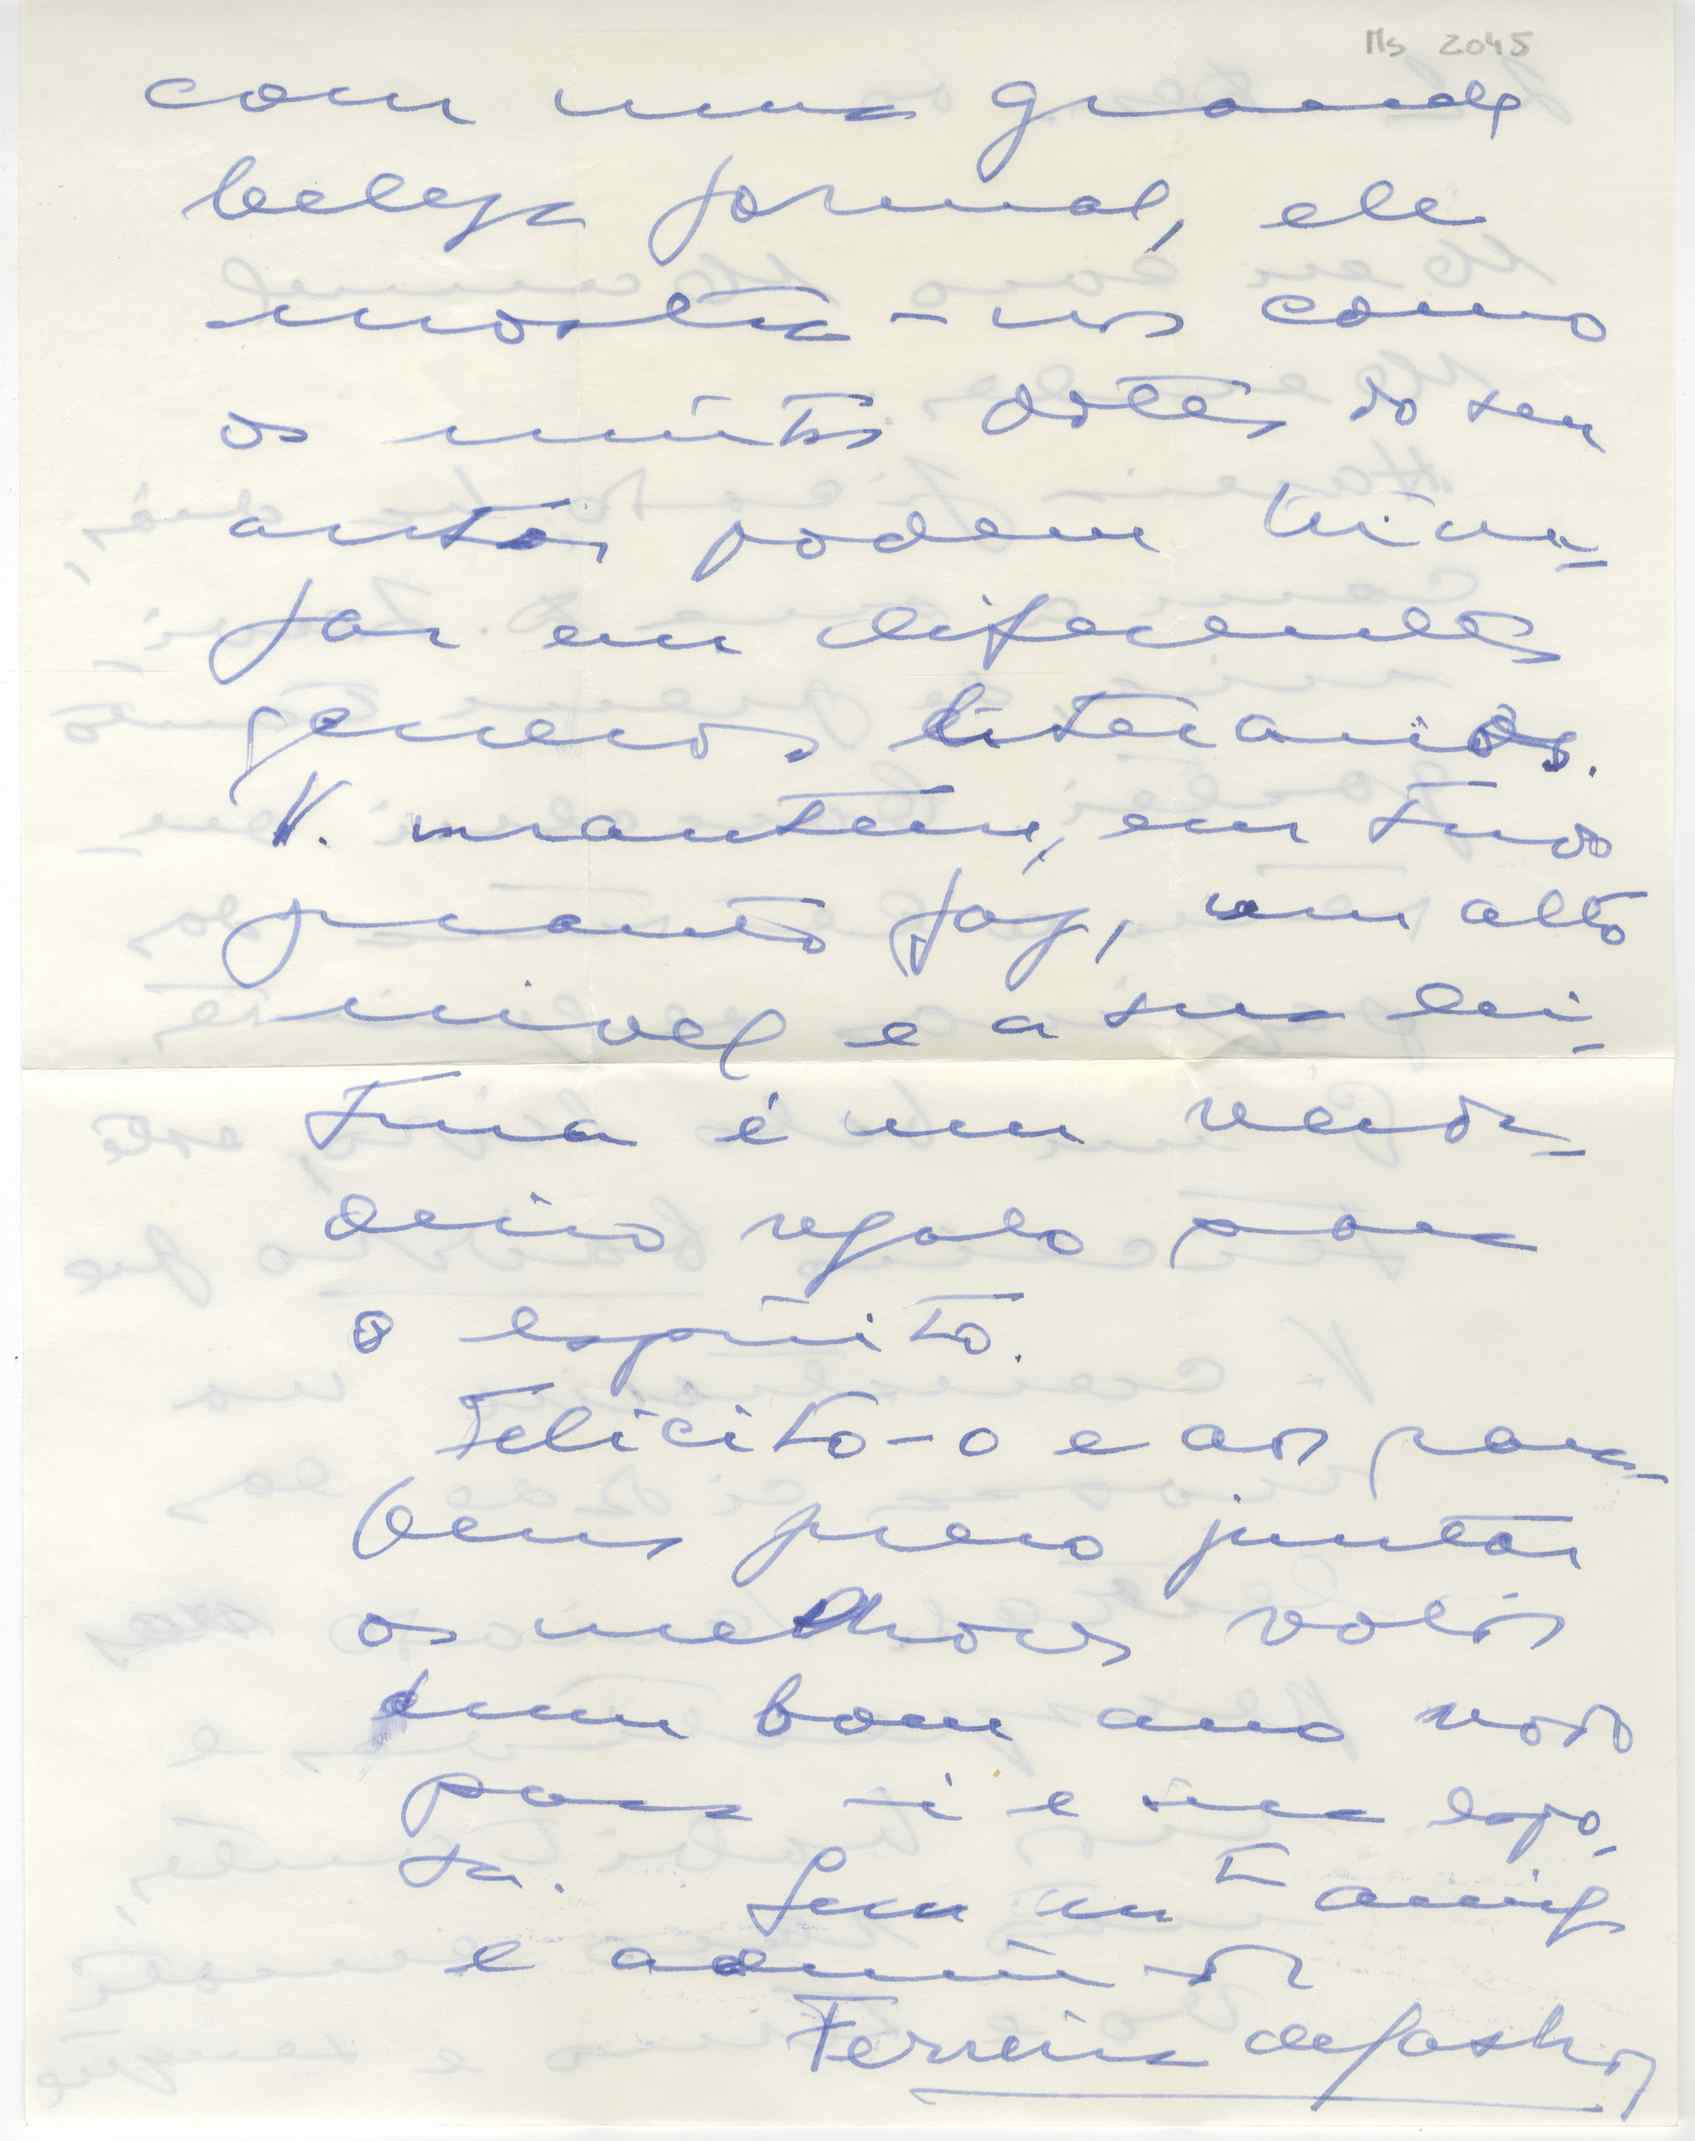 Ms 2045
com uma grande
beleza formal, ele
mostra-nos como
os muitos dotes do seu
autor podem triun-
far em diferentes
generos literarios.
V. mantem, em tudo
quanto faz, um alto
nivel e a sua lei-
tura é um verda-
deiro regalo para
o espirito.
Felicito-o e aos para-
bens quero juntar
os melhores votos
dum bom ano novo
para si e sua espo-
sa. Seu mto amigo
e admirador
Ferreira de Castro